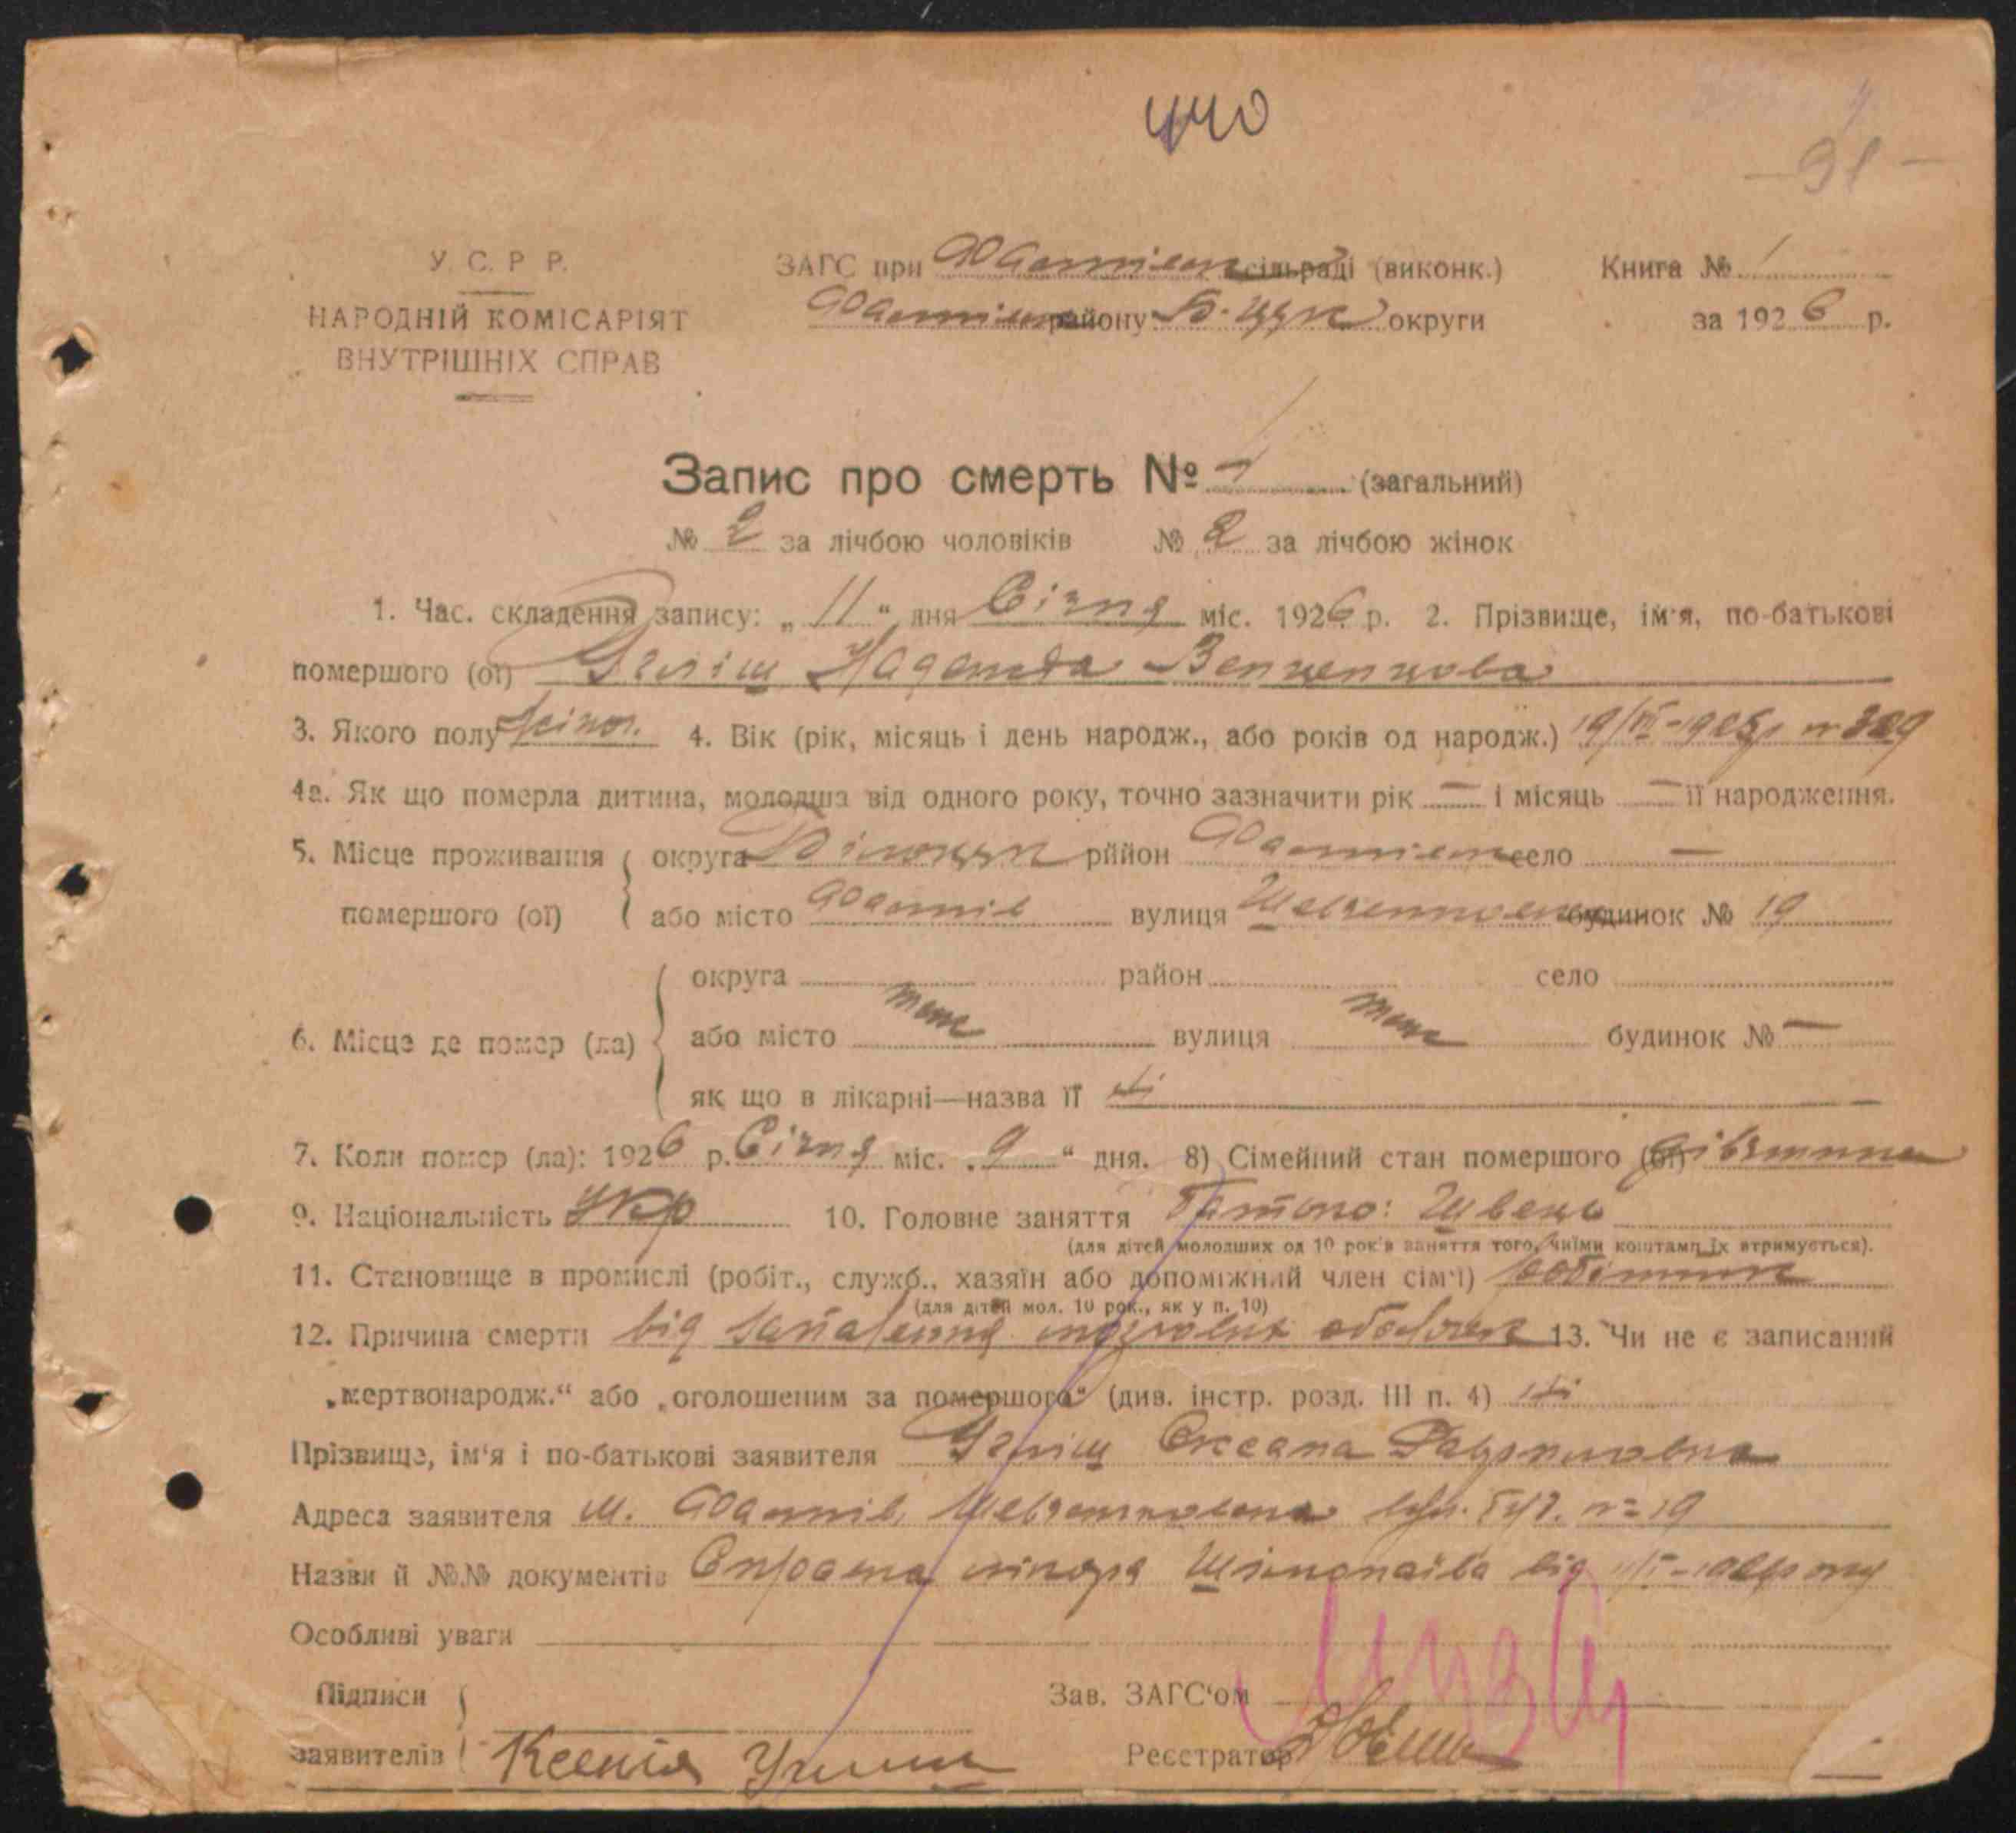 440
— 91 —
У. С. Р. Р.
НАРОДНІЙ КОМІСАРІЯТ
ВНУТРІШНІХ СПРАВ
ЗАГС при Фастівськ сільраді (виконк.)
Фастівськ району Б-Црк округи
Книга № 1
за 1926 р.
Запис про смерть № (загальний)
№ 2 за лічбою чоловіків № 2 за лічбою жінок
1. Час. складення запису: „11“ дня Січня міс. 1926 р. 2. Прізвище, ім'я, по-батькові
помершого (ої) Надежда
3. Якого полу жіноч. 4. Вік (рік, місяць і день народж., або років од народж.)
4а. Як що померла дитина, молодша від одного року, точно зазначити рік — і місяць — її народження.
5. Місце проживання помершого (ої)
округа Білоцрк рійон Фастівськ село —
або місто Фастів вулиця Шевченковська будинок № 19
6. Місце де помер (ла)
округа район село
або місто теж вулиця теж будинок № —
як що в лікарні—назва її ні
7. Коли помер (ла): 1926 р. Січня міс. „9“ дня. 8) Сімейний стан помершого (ої) дівчина
9. Національність Укр 10. Головне заняття Батько: Швець
(для дітей молодших од 10 рок'в заняття того, чиїми коштами їх втримується).
11. Становище в промислі (робіт., служб., хазяїн або допоміжний член сім'ї) робітник
(для дітей мол. 10 рок., як у п. 10)
12. Причина смерти від запалення мозгових оболочек 13. Чи не є записаний
„мертвонародж.“ або „оголошеним за помершого“ (див. інстр. розд. III п. 4) ні
Прізвище, ім'я і по-батькові заявителя Углиш Оксана
Адреса заявителя м. Фастів, Шевченковська вул. буд. № 19
Назви й №№ документів Справка лікаря від
Особливі уваги
Підписи
заявителів Ксенія Углиш
Зав. ЗАГС'ом
Реєстратор